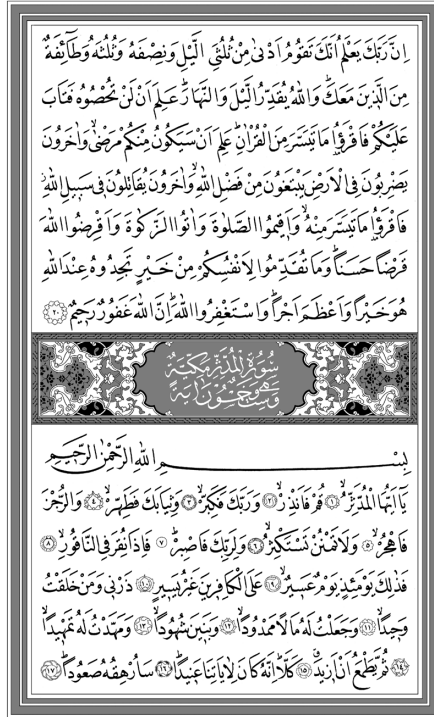 اِنَّ رَبَّكَ يَعْلَمُ اَنَّكَ تَقُومُ اَدْنٰى مِنْ ثُلُثَيِ الَّيْلِ وَنِصْفَهُ وَثُلُثَهُ وَطَٓائِفَةٌ
مِنَ الَّذ۪ينَ مَعَكَۜ وَاللّٰهُ يُقَدِّرُ الَّيْلَ وَالنَّهَارَۜ عَلِمَ اَنْ لَنْ تُحْصُوهُ فَتَابَ
عَلَيْكُمْ فَاقْرَؤُ۫ا مَا تَيَسَّرَ مِنَ الْقُرْاٰنِۜ عَلِمَ اَنْ سَيَكُونُ مِنْكُمْ مَرْضٰىۙ وَاٰخَرُونَ
يَضْرِبُونَ فِي الْاَرْضِ يَبْتَغُونَ مِنْ فَضْلِ اللّٰهِۙ وَاٰخَرُونَ يُقَاتِلُونَ ف۪ي سَب۪يلِ اللّٰهِۘ
فَاقْرَؤُ۫ا مَا تَيَسَّرَ مِنْهُۙ وَاَق۪يمُوا الصَّلٰوةَ وَاٰتُوا الزَّكٰوةَ وَاَقْرِضُوا اللّٰهَ
قَرْضاً حَسَناًۜ وَمَا تُقَدِّمُوا لِاَنْفُسِكُمْ مِنْ خَيْرٍ تَجِدُوهُ عِنْدَ اللّٰهِ
هُوَ خَيْراً وَاَعْظَمَ اَجْراًۜ وَاسْتَغْفِرُوا اللّٰهَۜ اِنَّ اللّٰهَ غَفُورٌ رَح۪يمٌ ﴿٢٠﴾
سُورَةُ الْمُدَّثِّرِ مَكِّيَّةٌ
وَهِيَ سِتٌّ وَخَمْسُونَ اٰيَةً
بِسْمِ اللّٰهِ الرَّحْمٰنِ الرَّح۪يمِ
يَٓا اَيُّهَا الْمُدَّثِّرُۙ ﴿١﴾ قُمْ فَاَنْذِرْۙ ﴿٢﴾ وَرَبَّكَ فَكَبِّرْۙ ﴿٣﴾ وَثِيَابَكَ فَطَهِّرْۙ ﴿٤﴾ وَالرُّجْزَ
فَاهْجُرْۙ ﴿٥﴾ وَلَا تَمْنُنْ تَسْتَكْثِرُۙ ﴿٦﴾ وَلِرَبِّكَ فَاصْبِرْۜ ﴿٧﴾ فَاِذَا نُقِرَ فِي النَّاقُورِۙ ﴿٨﴾
فَذٰلِكَ يَوْمَئِذٍ يَوْمٌ عَس۪يرٌۙ ﴿٩﴾ عَلَى الْكَافِر۪ينَ غَيْرُ يَس۪يرٍ ﴿١٠﴾ ذَرْن۪ي وَمَنْ خَلَقْتُ
وَح۪يداًۙ ﴿١١﴾ وَجَعَلْتُ لَهُ مَالاً مَمْدُوداًۙ ﴿١٢﴾ وَبَن۪ينَ شُهُوداًۙ ﴿١٣﴾ وَمَهَّدْتُ لَهُ تَمْه۪يداًۙ
﴿١٤﴾ ثُمَّ يَطْمَعُ اَنْ اَز۪يدَۗ ﴿١٥﴾ كَلَّاۜ اِنَّهُ كَانَ لِاٰيَاتِنَا عَن۪يداًۜ ﴿١٦﴾ سَاُرْهِقُهُ صَعُوداًۜ ﴿١٧﴾